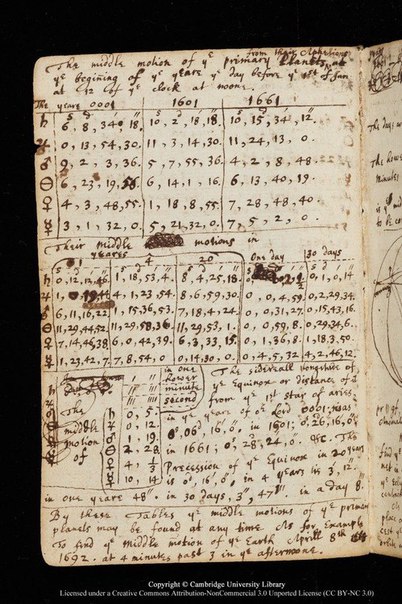 from their Aphelions
The middle motion of yᵉ primary Planets, at
yᵉ begining of yᵉ yeare yᵉ day before yᵉ 1st of Jan
at 12 of yᵉ clock at noone.
The yeare 0001 1601 1661
♄ 6, 8, 34, 18. 10, 2, 18, 18. 10, 15, 34, 12.
♃ 0, 13, 54, 30. 11, 3, 14, 30. 11, 24, 13, 0.
♂ 9, 2, 3, 36. 5, 7, 55, 36. 4, 2, 8, 48.
6, 23, 19, 6, 14, 1, 16. 6, 13, 40, 19.
♀ 4, 3, 48, 55. 1, 18, 8, 55. 7, 28, 48, 40.
☿ 3, 1, 32, 0. 5, 21, 32, 0. 7, 5, 2, 0.
Their middle motions in
yeares
1 4 20 One day 30 days
♄ 0, 12, 13, 46 1, 18, 53, 4. 8, 4, 25, 18. 0, 1, 0, 14
♃ 4, 1, 23, 54. 8, 6, 59, 30. 0, 0, 4, 59 0, 2, 29, 34.
♂ 6, 11, 16, 22 1, 15, 36, 53. 7, 18, 4, 24. 0, 0, 31, 27. 0, 15, 43, 16.
11, 29, 44, 52. 11, 29, 58, 36. 11, 29, 53, 1. 0, 0, 59, 8. 0, 29, 34, 6.
♀ 7, 14, 46, 38. 6, 0, 42, 39. 6, 3, 33, 15. 0, 1, 36, 8. 1, 18, 3, 50.
☿ 1, 23, 42, 7. 7, 8, 54, 0 0, 14, 30, 0. 0, 4, 5, 32 4, 2, 46, 12.
in one
hower
minute
second
The
middle
motion
of
♄ 0, 5.
♃ 0, 12.
♂ 1, 19.
2, 28.
♀ 4,
☿ 10, 14
The sidereall longitude of
yᵉ Equinox or distance of it
from yᵉ 1st star of aries
in yᵉ yeare of oʳ Lord 0001, was
0ˢ 06ᵈ, 16', 0''. in 1601; 0, 26, 16, 0''
in 1661; 0, 28, 24, 0''. &c. The
Precession of yᵉ Equinox in 20 years
is 0ᵈ, 16', 0''. in 4 years is 3', 12''.
in one yeare 48'' in 30 days, 3'', 47'''. in a day 8.
By these Tables yᵉ middle motions of yᵉ primary
planets may be found at any time. As for Example
To find yᵉ middle motion of yᵉ Earth Aprill 8th
1692. at 4 minutes past 3 in yᵉ afternoone.
Copyright © Cambridge University Library
Licensed under a Creative Commons Attribution-NonCommercial 3.0 Unported License (CC BY-NC 3.0)